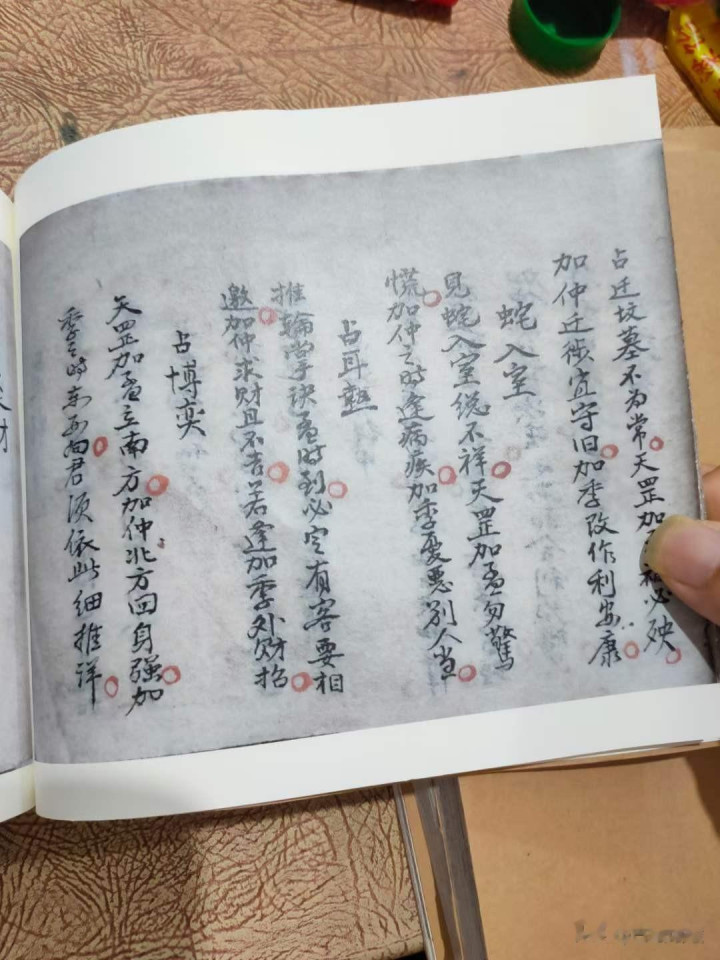 占迁坟墓不为常天罡加必殃
加仲迁移宜守旧加季改作利安康
蛇入室
見蛇入室総不祥天罡加孟勿驚
慌加仲之时逢病疾加季憂患别人当
占耳熱
推輪掌诀孟时到必定有客要相
邀加仲求财且不吉若逢加季处财招
占博奕
天罡加孟立南方加仲北方回身强加
季之时向君须依此细推详
财